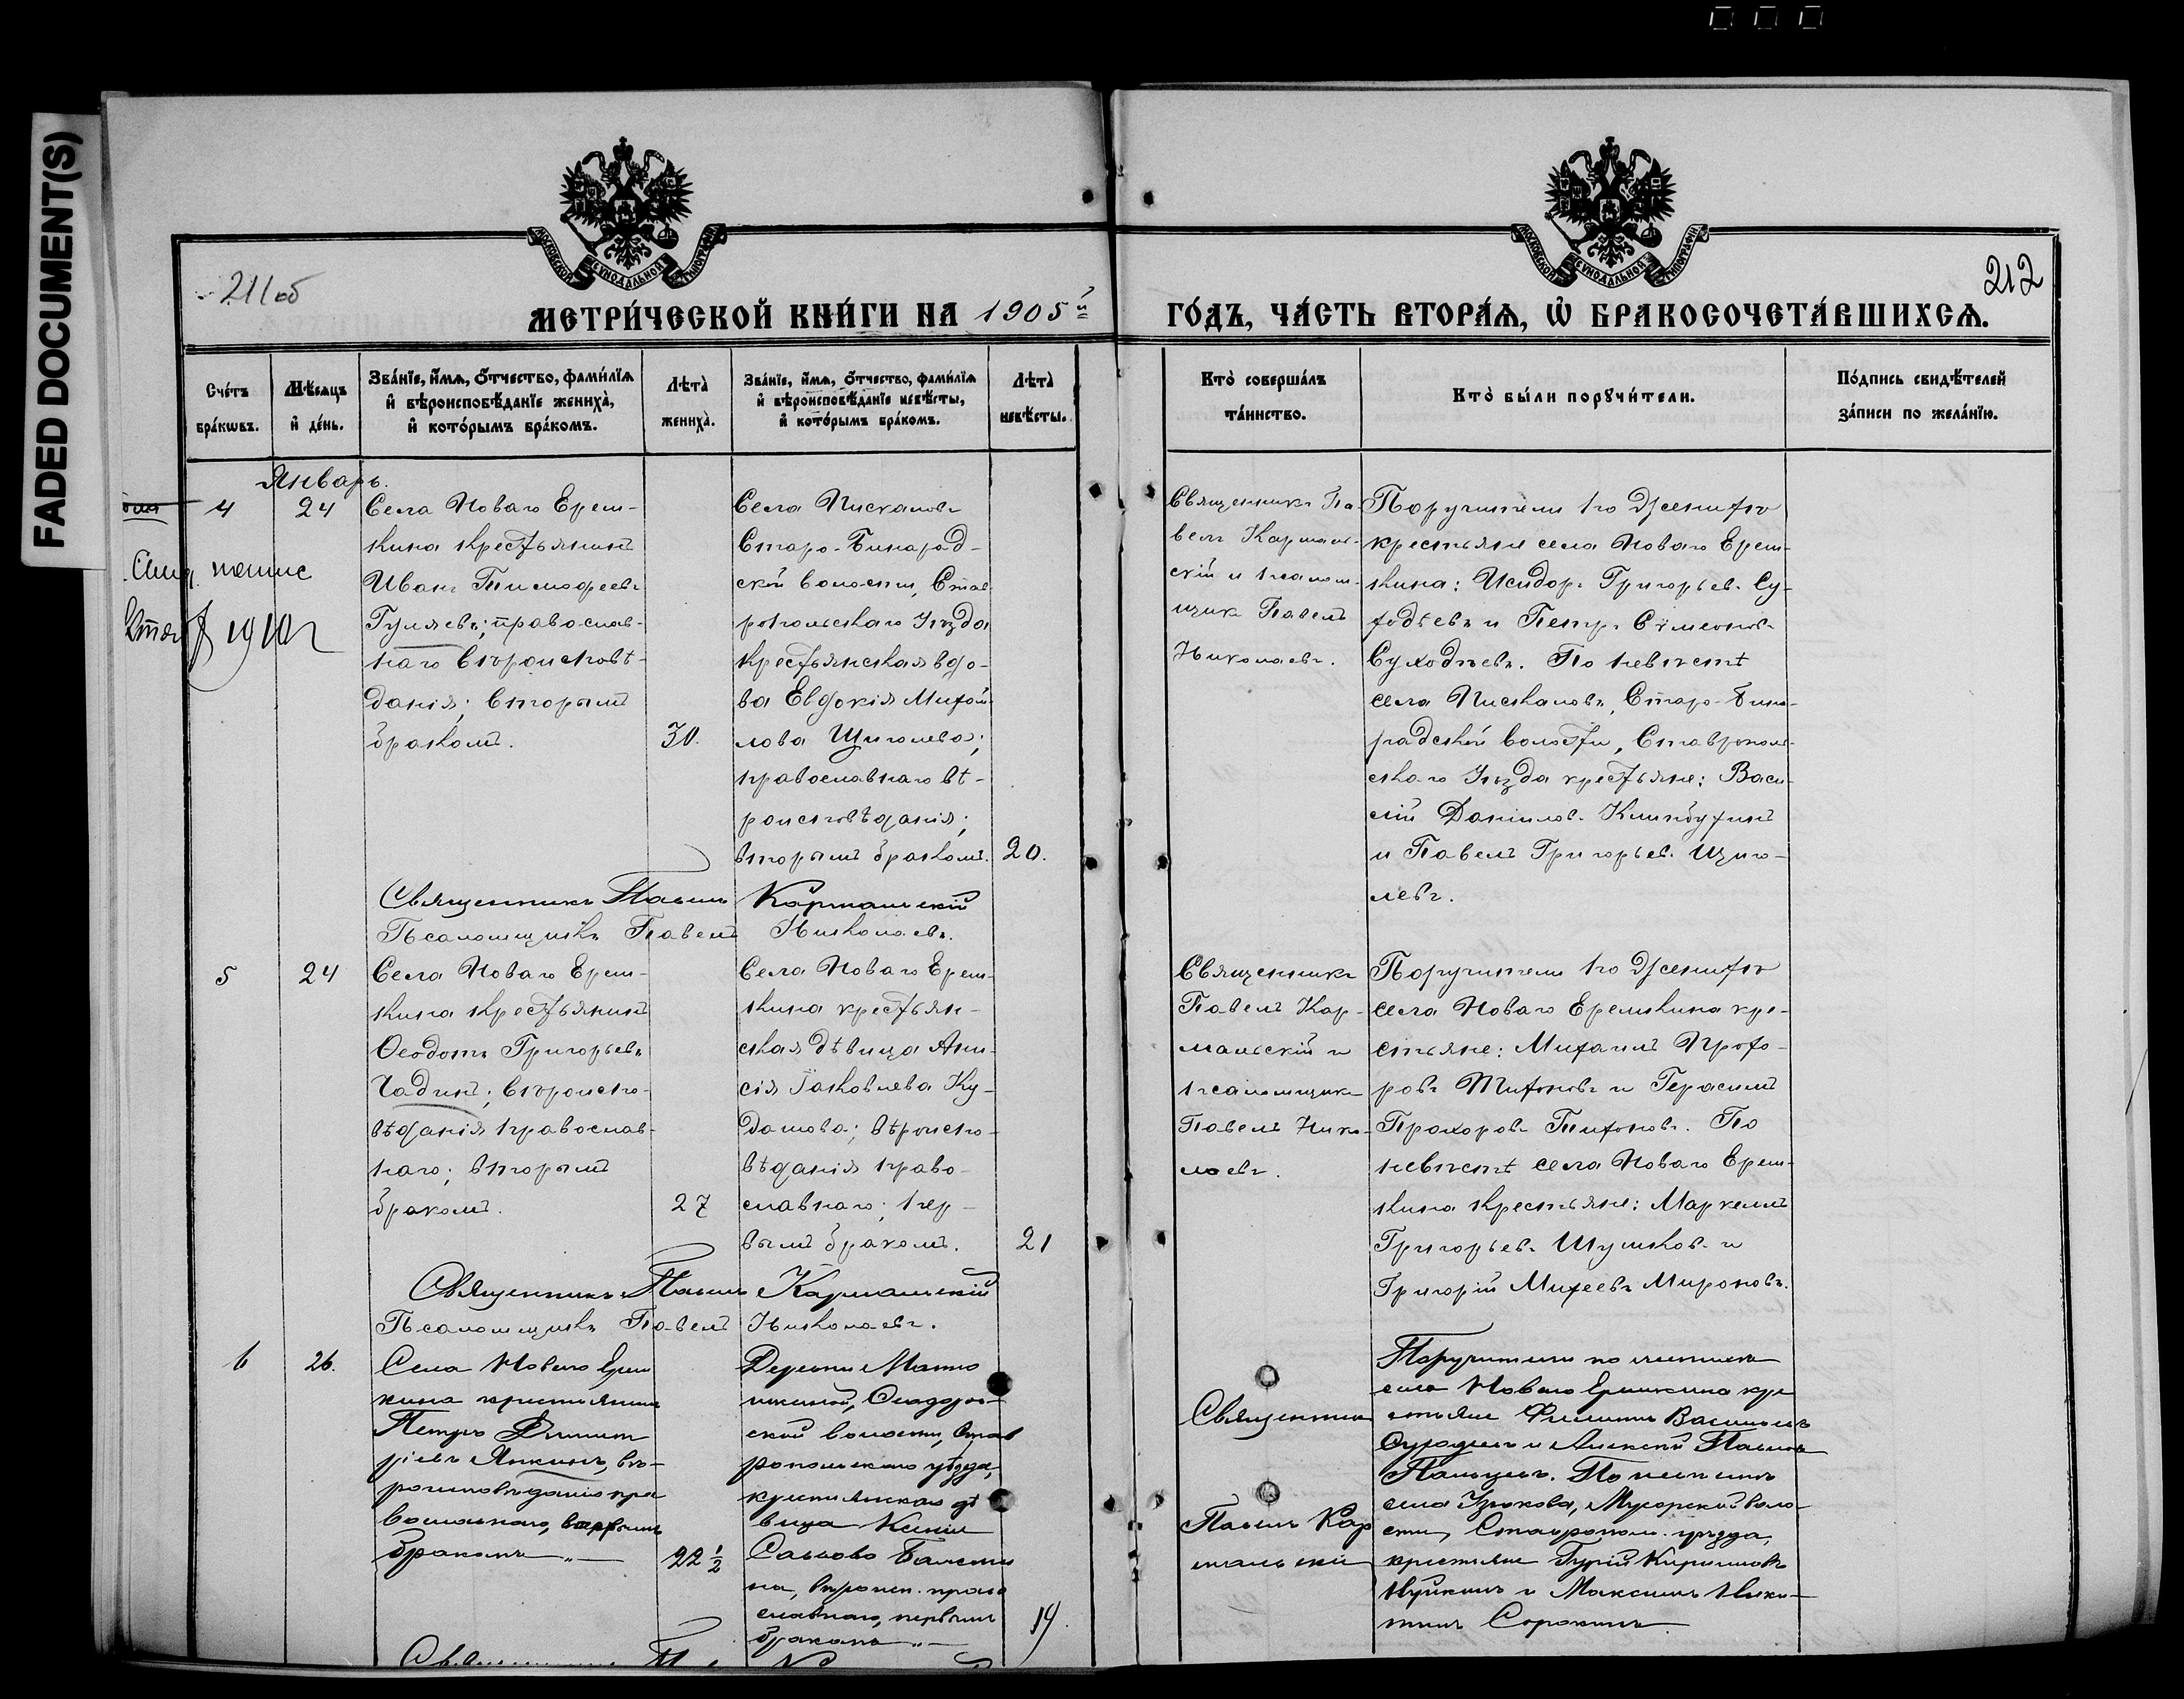 FADED DOCUMENT(S)
211об
212
МОСКОВСКОЙ СѴНОДАЛЬНОЙ ТИПОГРАФІИ
МОСКОВСКОЙ СѴНОДАЛЬНОЙ ТИПОГРАФІИ
МЕТРИ́ЧЕСКОЙ КНИ́ГИ НА 1905й
ГО́ДЪ, ЧА́СТЬ ВТОРА́Ѧ, Ѡ҆ БРАКОСОЧЕТА́ВШИХСѦ.
Сче́тъ бра́кѡвъ.
Мѣ́сяцъ и҆ де́нь.
Зва́нїе, и҆́мѧ, ѻ҆́тчество, фами́лїѧ и҆ вѣроисповѣ́данїе жениха̀, и҆ кото́рымъ бра́комъ.
Лѣта̀ жениха̀.
Зва́нїе, и҆́мѧ, ѻ҆́тчество, фами́лїѧ и҆ вѣроисповѣ́данїе невѣ́сты, и҆ кото́рымъ бра́комъ.
Лѣта̀ невѣ́сты.
Кто̀ соверша́лъ та́инство.
Кто̀ бы́ли порꙋчи́тели.
По́дпись свидѣ́телей за́писи по жела́нїю.
Январь.
4
24
Села Новаго Ерем-
кина крестьянинъ
Иванъ Тимофеевъ
Гуляевъ; православ-
наго вѣроисповѣ-
данія; вторымъ
бракомъ.
30.
Села Пискаловъ
Старо-Бинарад-
ской волости, Став-
ропольскаго Уѣзда
крестьянская вдо-
ва Евдокія Михай-
лова Щиголева;
православнаго вѣ-
роисповѣданія;
вторымъ бракомъ.
20.
Священникъ Па-
велъ Кармаль-
скій и псалом-
щикъ Павелъ
Николаевъ.
Поручители по женихѣ
крестьяне села Новаго Ерем-
кина: Исидоръ Григорьевъ Су-
ходѣевъ и Петръ Симеоновъ
Суходѣевъ. По невѣстѣ
села Пискаловъ, Старо-Бина-
радской волости, Ставрополь-
скаго Уѣзда крестьяне: Васи-
лій Даниловъ
и Павелъ Григорьевъ Щиго-
левъ.
1910 г
Священникъ Павелъ Кармальскій
Псаломщикъ Павелъ Николаевъ.
5
24
Села Новаго Ерем-
кина крестьянинъ
Ѳеодотъ Григорьевъ
Чадинъ; вѣроиспо-
вѣданія православ-
наго; вторымъ
бракомъ.
27
Села Новаго Ерем-
кина крестьян-
ская дѣвица Ани-
сія Іаковлева Ку-
дашова; вѣроиспо-
вѣданія право-
славнаго; пер-
вымъ бракомъ.
21
Священникъ
Павелъ Кар-
мальскій и
псаломщикъ
Павелъ Нико-
лаевъ.
Поручители по женихѣ
села Новаго Еремкина кре-
стьяне: Михаилъ Прохо-
ровъ Тихоновъ и Герасимъ
Прохоровъ Тихоновъ. По
невѣстѣ села Новаго Ерем-
кина крестьяне: Маркеллъ
Григорьевъ Шушковъ и
Григорій Михеевъ Мироновъ.
Священникъ Павелъ Кармальскій
Псаломщикъ Павелъ Николаевъ.
6
26.
Села Новаго Ерем
кина крестьянинъ
Петръ Димит
ріевъ Янкинъ, вѣ-
роисповѣданія пра
вославнаго, первымъ
бракомъ
22 ½
Деревни
Ѳеодоров-
ской волости, Став
ропольскаго уѣзда,
крестьянская дѣ
вица Ксенія
Саввова
на, вѣроисп. право
славнаго, первымъ
бракомъ
19.
Священникъ
Павелъ Кар
мальскій
Поручители по женихѣ
села Новаго Еремкина кре
стьяне Филиппъ Васильевъ
Суходѣевъ и Алексѣй Павловъ
По невѣстѣ
села Узюкова, Мусорской воло-
сти, Ставропол. уѣзда,
крестьяне Гурій Кирилловъ
и Максимъ Ники-
тинъ Сорокинъ